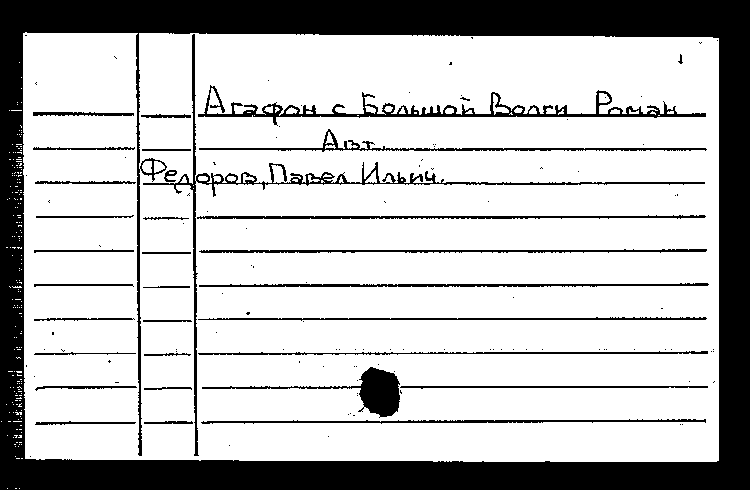 Агафон с Большой Волги Роман
Авт.
Федоров, Павел Ильич.